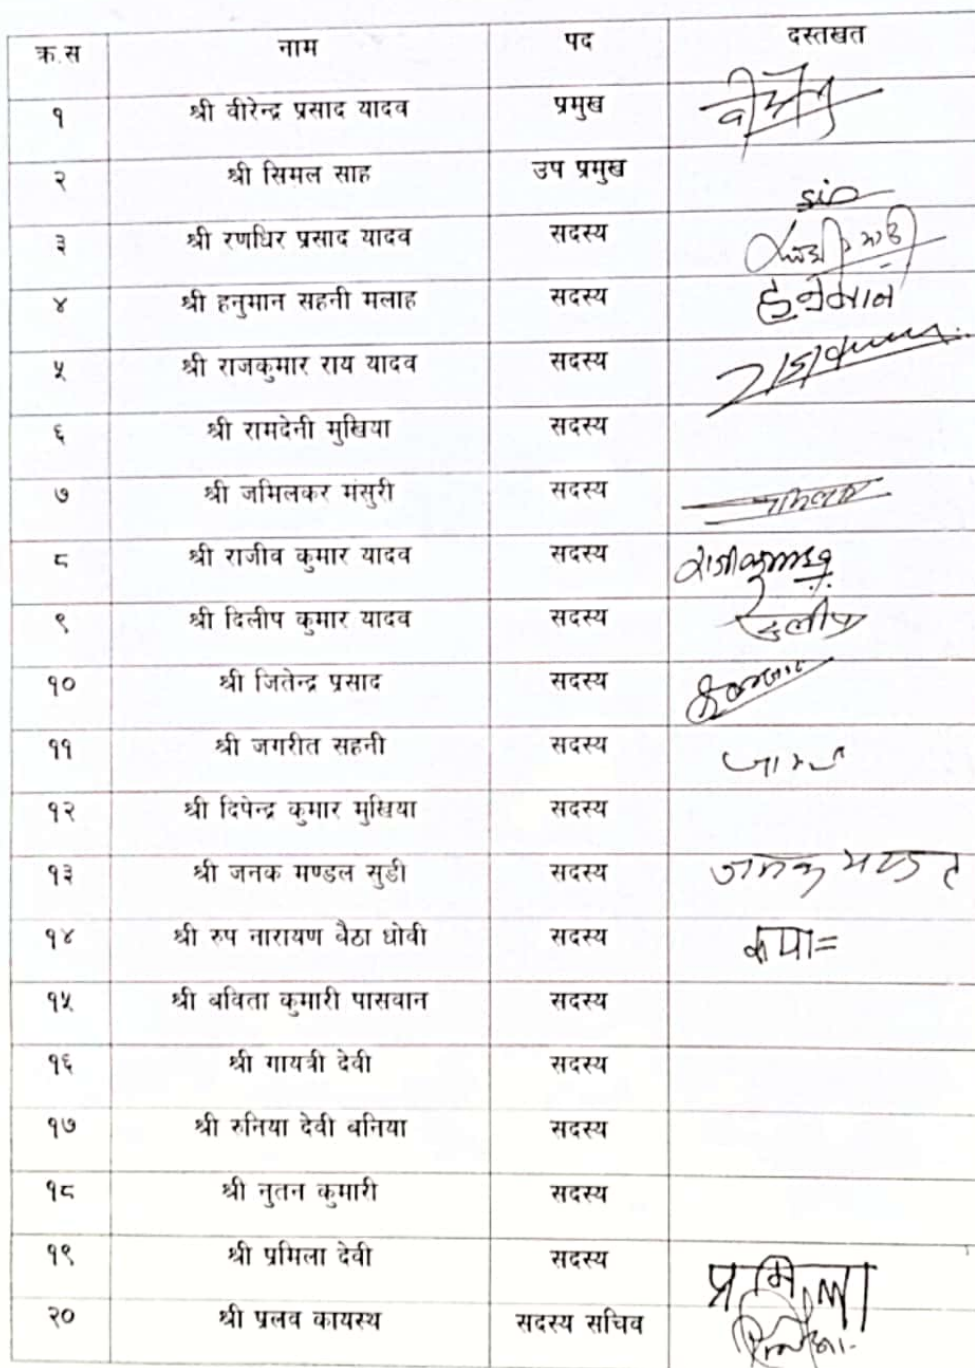 क्र.स नाम पद दस्तखत
१ श्री वीरेन्द्र प्रसाद यादव प्रमुख
२ श्री सिमल साह उप प्रमुख
३ श्री रणधिर प्रसाद यादव सदस्य
४ श्री हनुमान सहनी मलाह सदस्य हनुमान
५ श्री राजकुमार राय यादव सदस्य
६ श्री रामदेनी मुखिया सदस्य
७ श्री जमिलकर मंसुरी सदस्य
८ श्री राजीव कुमार यादव सदस्य
९ श्री दिलीप कुमार यादव सदस्य
१० श्री जितेन्द्र प्रसाद सदस्य
११ श्री जगरीत सहनी सदस्य
१२ श्री दिपेन्द्र कुमार मुखिया सदस्य
१३ श्री जनक मण्डल सुडी सदस्य जनक
१४ श्री रुप नारायण बैठा धोवी सदस्य
१५ श्री बविता कुमारी पासवान सदस्य
१६ श्री गायत्री देवी सदस्य
१७ श्री रुनिया देवी बनिया सदस्य
१८ श्री नुतन कुमारी सदस्य
१९ श्री प्रमिला देवी सदस्य प्रमिला
२० श्री प्रलव कायस्थ सदस्य सचिव